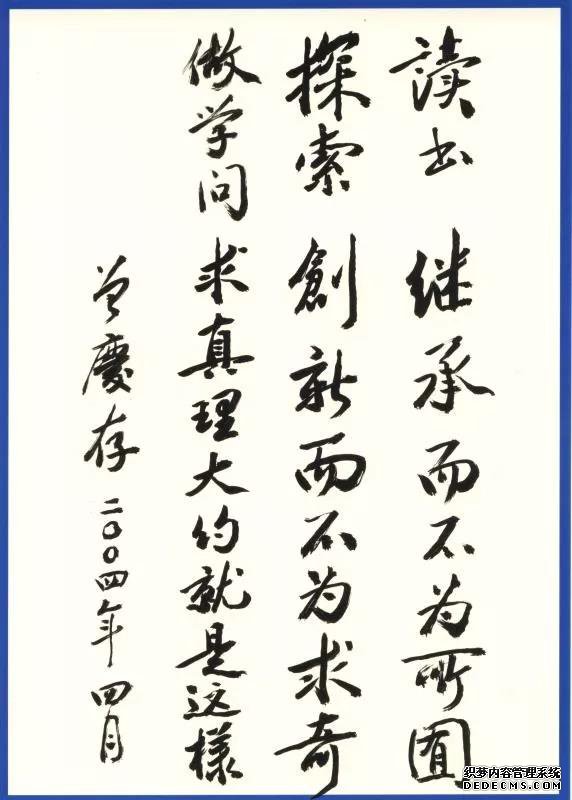 讀书 继承而不为所囿
探索 創新而不为求奇
做学问 求真理大约就是这樣
曾慶存 二〇〇四年四月
织梦内容管理系统
DEDECMS.COM